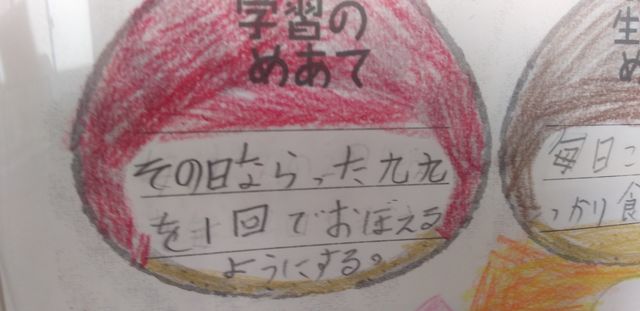 学習の
めあて
その日ならった九九
を1回でおぼえる
ようにする。
生
め
毎日こ
っかり食